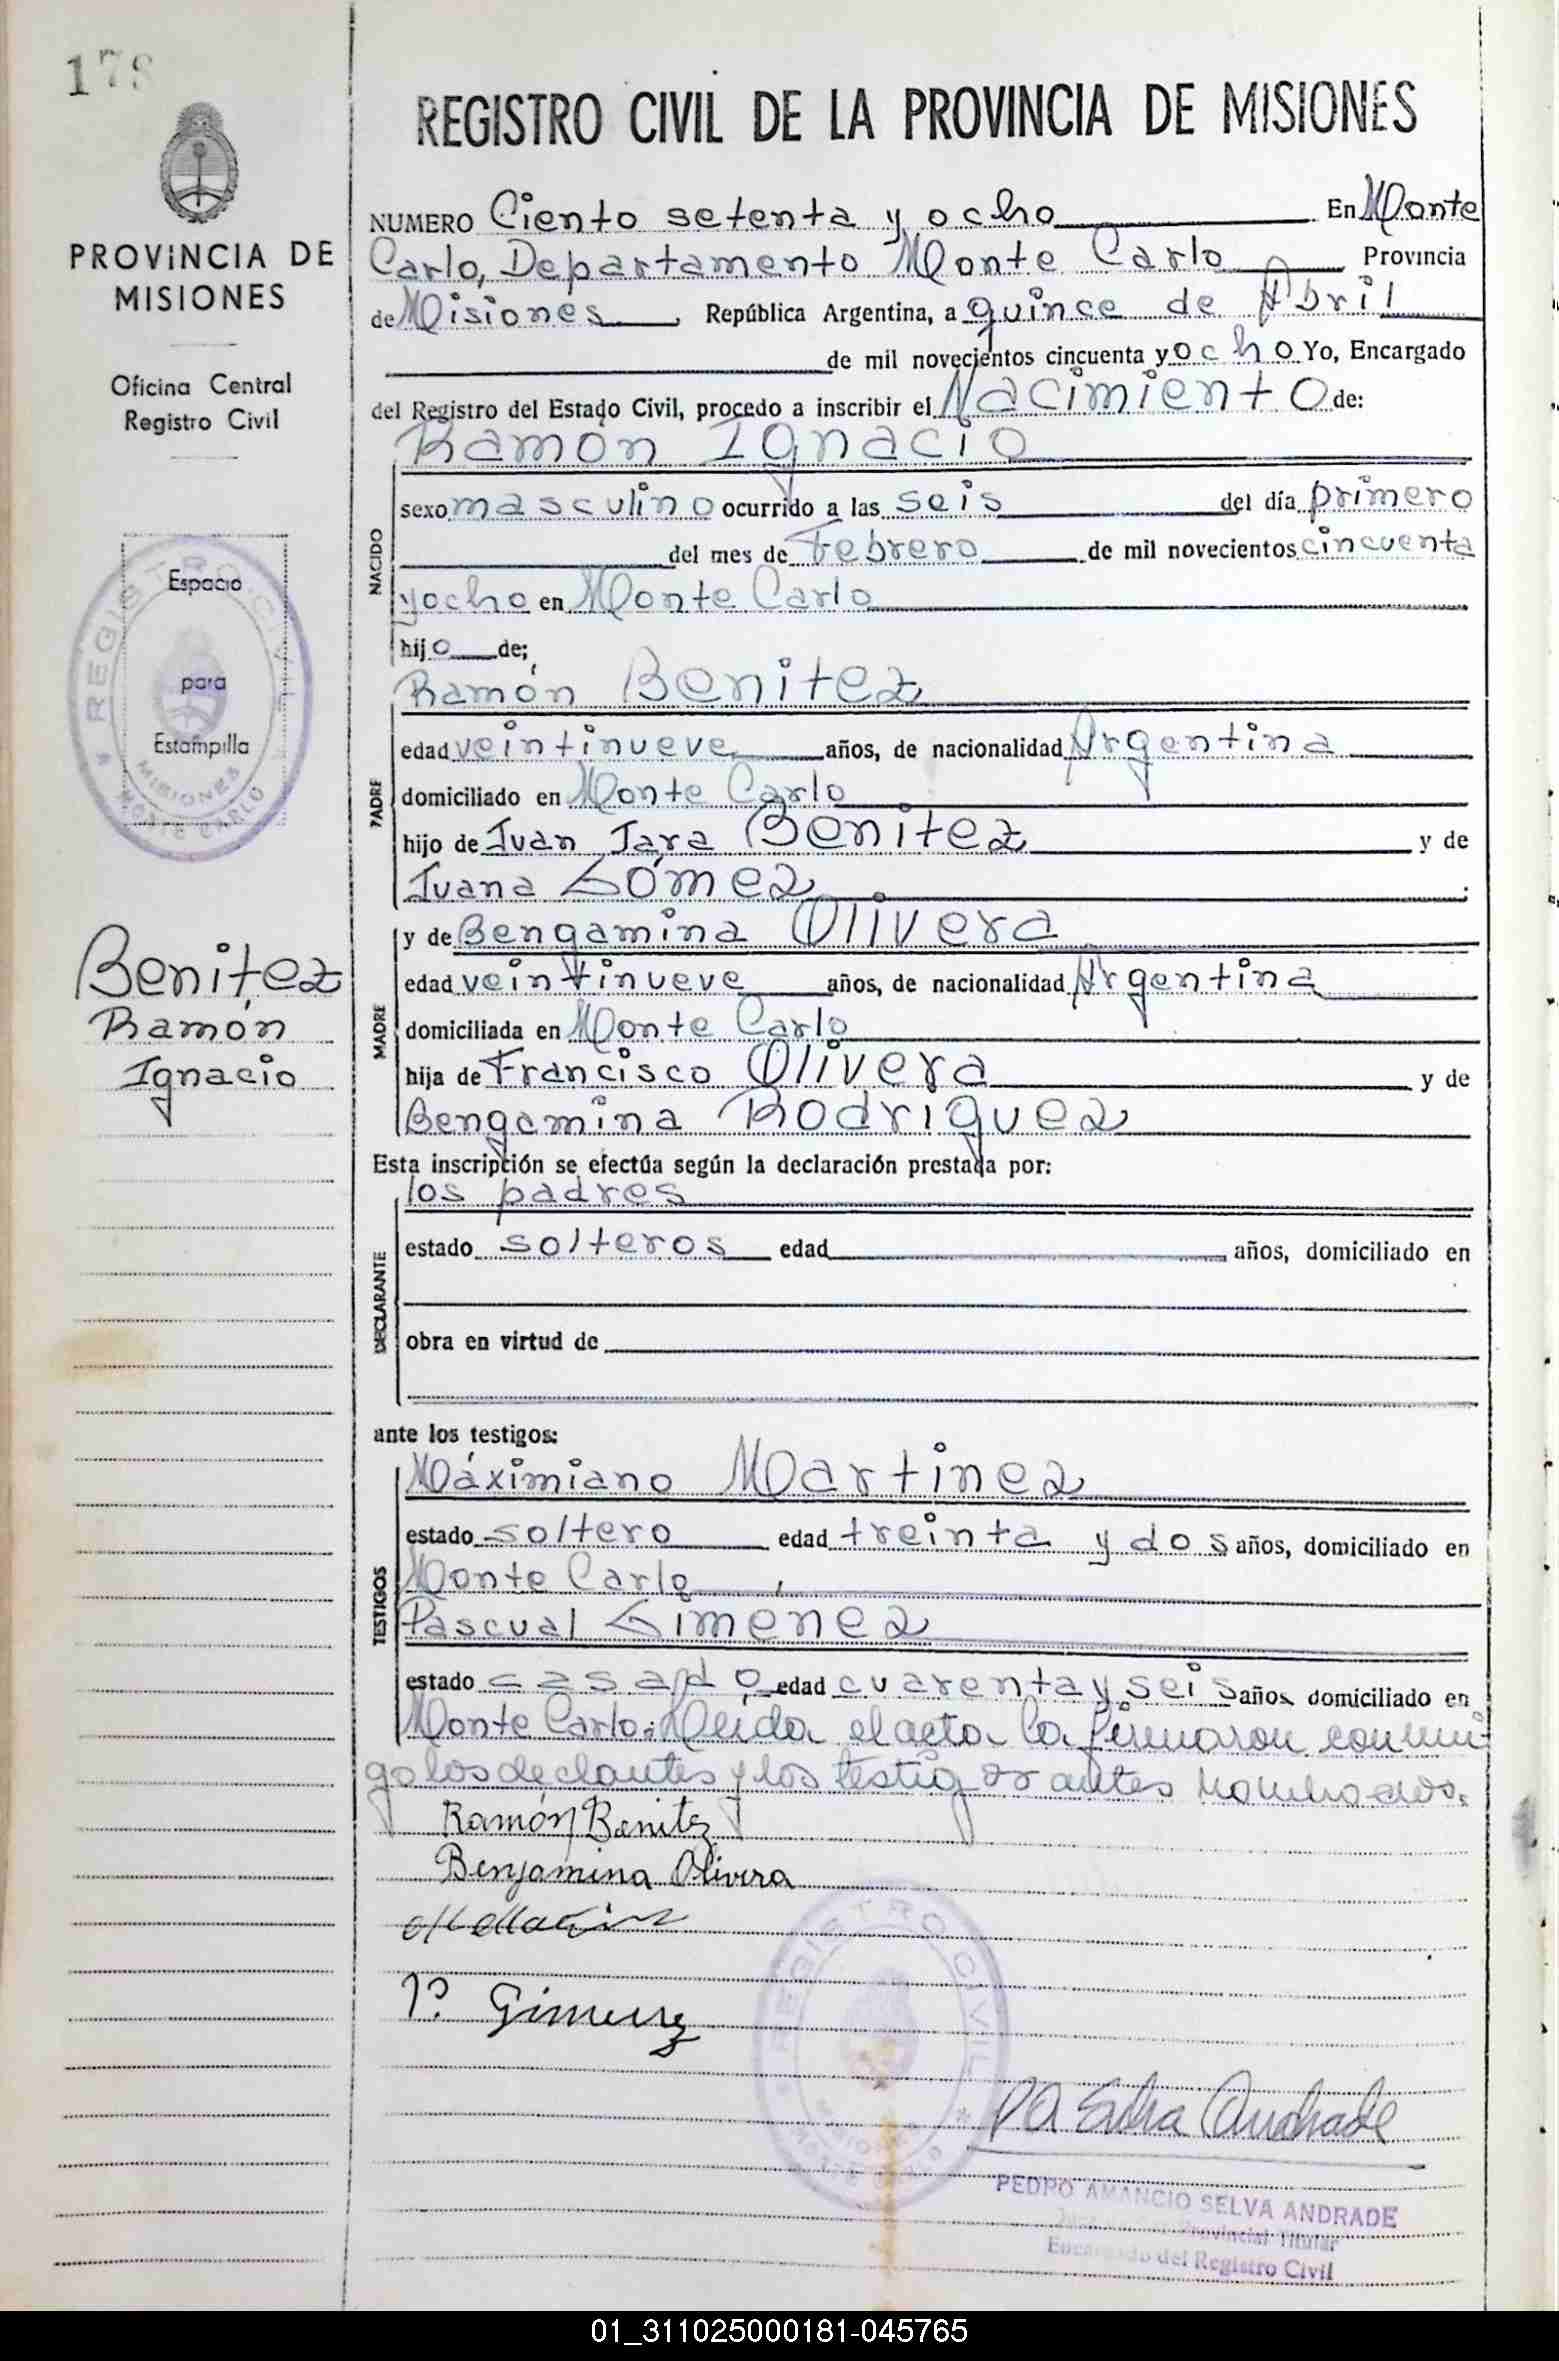 178
PROVINCIA DE
MISIONES
Oficina Central
Registro Civil
REGISTRO CIVIL
Espacio
para
Estampilla
MISIONES
MONTE CARLO
Benitez
Ramón
Ignacio
REGISTRO CIVIL DE LA PROVINCIA DE MISIONES
NUMERO Ciento setenta y ocho En Monte
Carlo, Departamento Monte Carlo Provincia
de Misiones, República Argentina, a quince de Abril
de mil novecientos cincuenta y ocho Yo, Encargado
del Registro del Estado Civil, procedo a inscribir el Nacimiento de:
Ramón Ignacio
NACIDO
sexo masculino ocurrido a las seis del día primero
del mes de Febrero de mil novecientos cincuenta
y ocho en Monte Carlo
hijo de;
Ramón Benitez
PADRE
edad veintinueve años, de nacionalidad Argentina
domiciliado en Monte Carlo
hijo de Juan Jara Benitez y de
Juana Gómez;
MADRE
y de Bengamina Olivera
edad veintinueve años, de nacionalidad Argentina
domiciliada en Monte Carlo
hija de Francisco Olivera y de
Bengamina Rodriguez
Esta inscripción se efectúa según la declaración prestada por:
DECLARANTE
los padres
estado solteros edad años, domiciliado en
obra en virtud de
ante los testigos:
TESTIGOS
Máximiano Martinez
estado soltero edad treinta y dos años, domiciliado en
Monte Carlo,
Pascual Gimenez
estado casado edad cuarenta y seis años domiciliado en
Monte Carlo. Leida el acta la firmaron conmi-
go los declantes y los testigos antes nombrados.
Ramón Benitez
Benjamina Olivera
P. Gimenez
REGISTRO CIVIL
MISIONES
MONTE CARLO
PA Selva Andrade
PEDRO AMANCIO SELVA ANDRADE
Provincial Titular
Encargado del Registro Civil
01_311025000181-045765